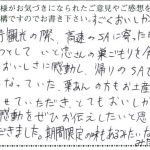 様がお気づきになられたご意見やご感想を
構ですのでお書き下さい。すごくおいしか
観光の際、高速のSAに寄った
していと恋さんの巣ごもりを
おいしさに感動し、帰りのSAで
なっていた。栗あんの方もお土産
せていただき、とてもおいし
感動をぜひお伝えしたいと思
ごきました。期間限定の味もあるみたいな